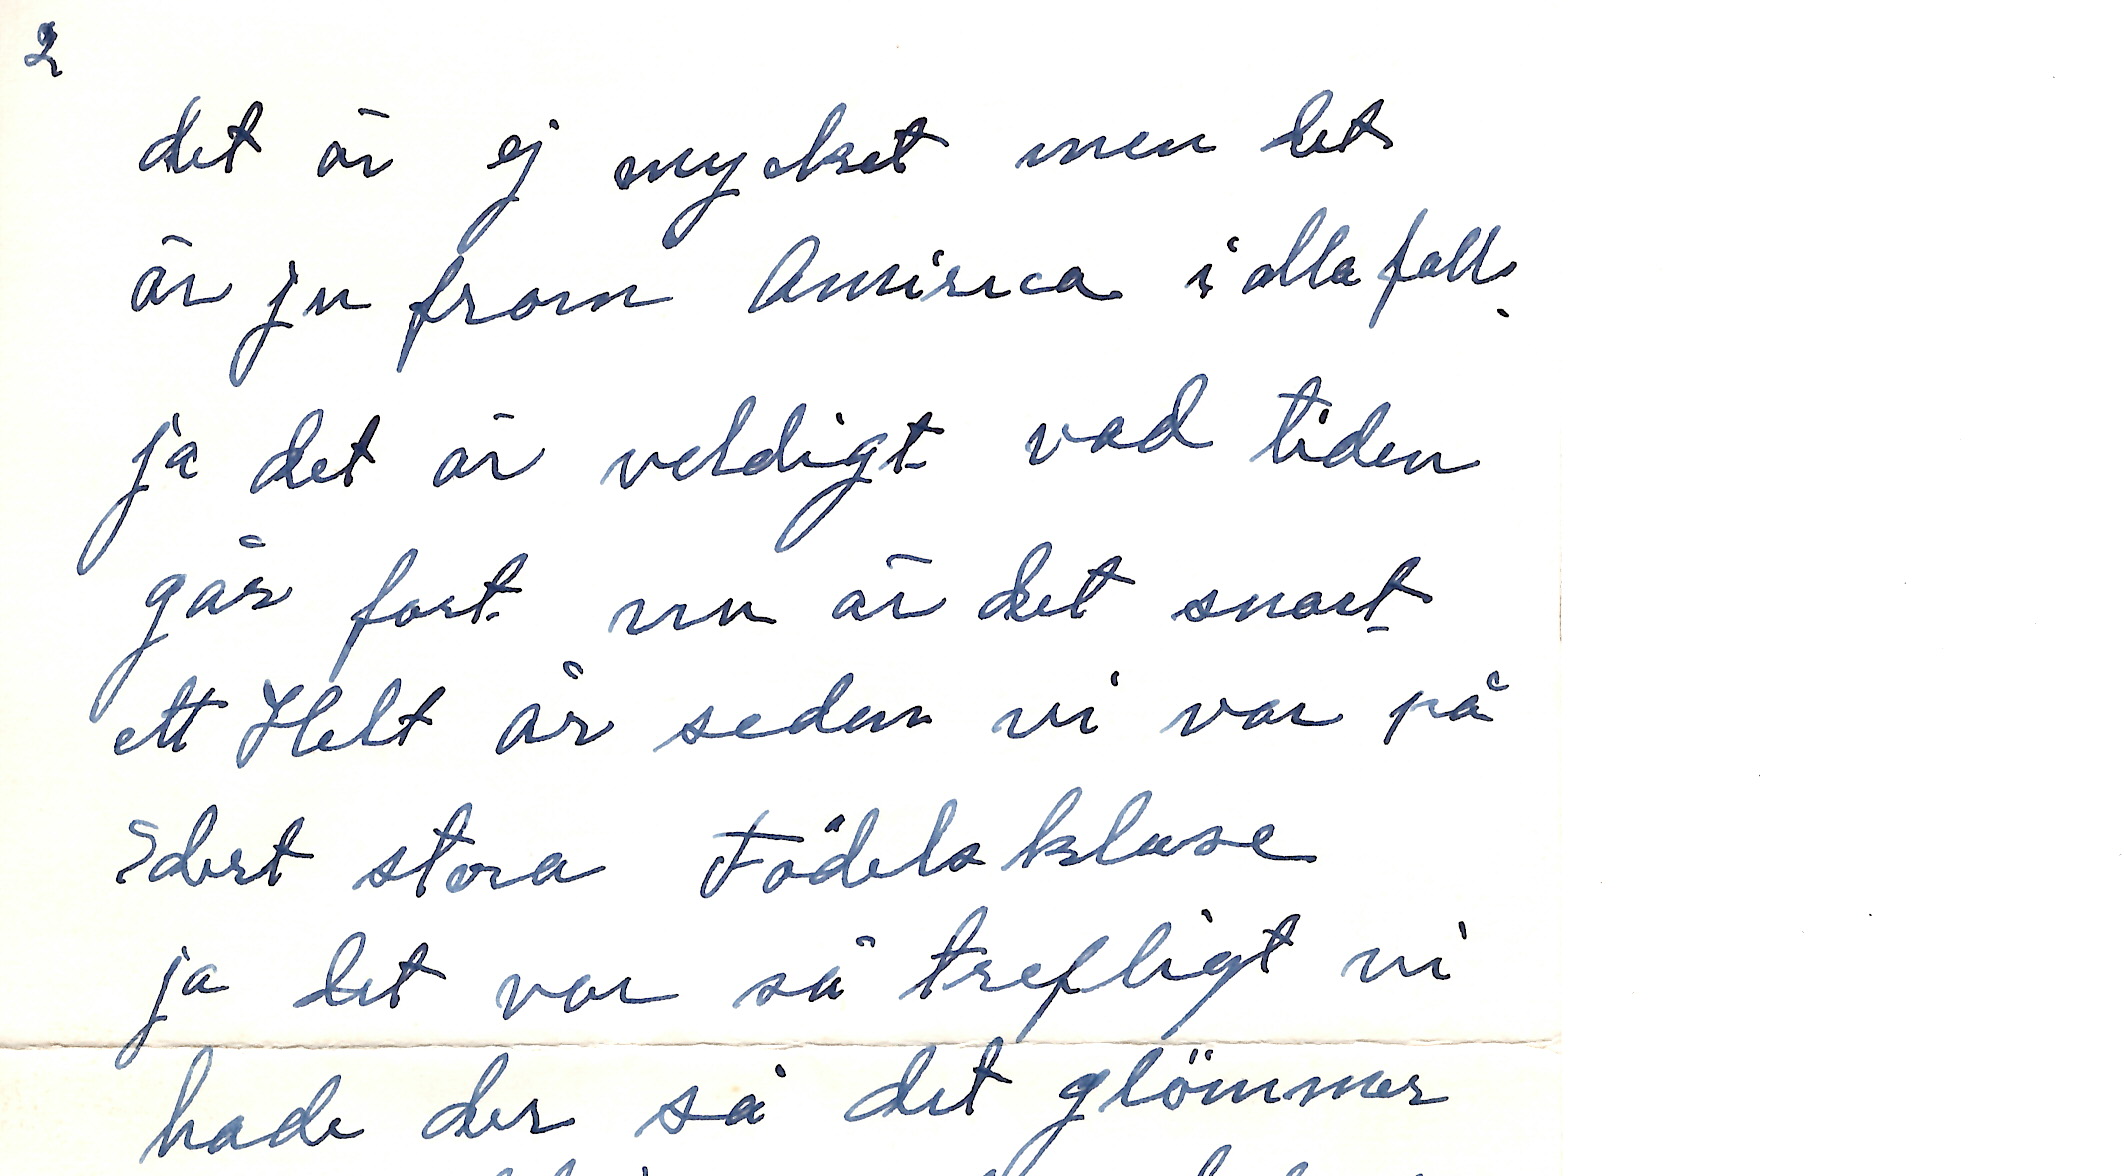 2
det är ej mycket men det
är ju from America i alla fall.
ja det är veldigt vad tiden
går fort nu är det snart
ett Helt år sedan vi var på
Edert stora Födelsklase
ja det var så trefligt vi
hade der så det glömmer